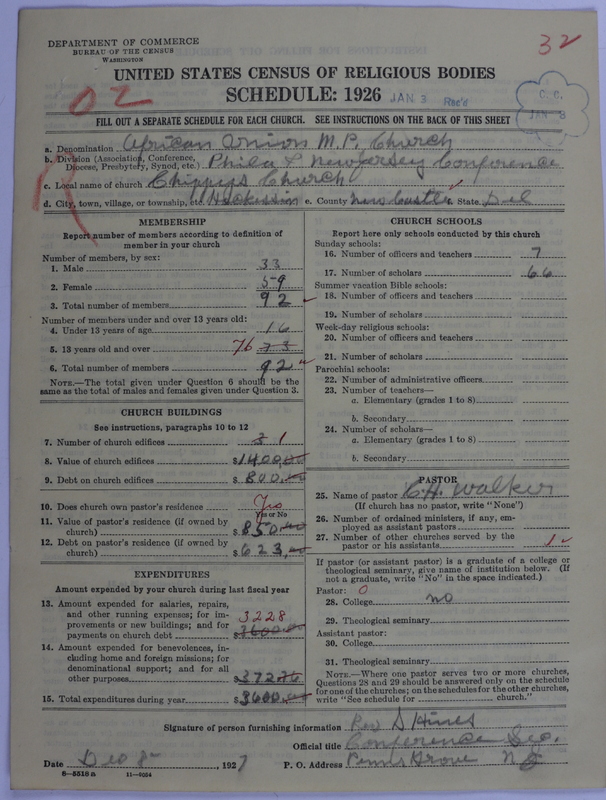 DEPARTMENT OF COMMERCE
BUREAU OF THE CENSUS
WASHINGTON
32
UNITED STATES CENSUS OF RELIGIOUS BODIES
SCHEDULE: 1926
JAN 3 Rec'd
C. C.
JAN 8
02
FILL OUT A SEPARATE SCHEDULE FOR EACH CHURCH. SEE INSTRUCTIONS ON THE BACK OF THIS SHEET
a. Denomination African Union M. P. Church
b. Division (Association, Conference, Diocese, Presbytery, Synod, etc.) Phila & New Jersey Conference
c. Local name of church Chippys Church
d. City, town, village, or township, etc. Hockessin e. County New Castle f. State Del
MEMBERSHIP
Report number of members according to definition of
member in your church
Number of members, by sex:
1. Male 33
2. Female 59
3. Total number of members 92
Number of members under and over 13 years old:
4. Under 13 years of age 16
5. 13 years old and over 76 73
6. Total number of members 92
NOTE.—The total given under Question 6 should be the
same as the total of males and females given under Question 3.
CHURCH BUILDINGS
See instructions, paragraphs 10 to 12
7. Number of church edifices 1
8. Value of church edifices $1400.00
9. Debt on church edifices $800.00
10. Does church own pastor's residence Yes
Yes or No
11. Value of pastor's residence (if owned by
church) $850.00
12. Debt on pastor's residence (if owned by
church) $623.00
EXPENDITURES
Amount expended by your church during last fiscal year
13. Amount expended for salaries, repairs,
and other running expenses; for im-
provements or new buildings; and for 3228
payments on church debt $3600.00
14. Amount expended for benevolences, in-
cluding home and foreign missions; for
denominational support; and for all
other purposes $372.76
15. Total expenditures during year $3600.00
CHURCH SCHOOLS
Report here only schools conducted by this church
Sunday schools:
16. Number of officers and teachers 7
17. Number of scholars 66
Summer vacation Bible schools:
18. Number of officers and teachers
19. Number of scholars
Week-day religious schools:
20. Number of officers and teachers
21. Number of scholars
Parochial schools:
22. Number of administrative officers
23. Number of teachers—
a. Elementary (grades 1 to 8)
b. Secondary
24. Number of scholars—
a. Elementary (grades 1 to 8)
b. Secondary
PASTOR
25. Name of pastor C. H. Walker
(If church has no pastor, write "None")
26. Number of ordained ministers, if any, em-
ployed as assistant pastors
27. Number of other churches served by the
pastor or his assistants 1
If pastor (or assistant pastor) is a graduate of a college or
theological seminary, give name of institution below. (If
not a graduate, write "No" in the space indicated.)
Pastor: 0
28. College no
29. Theological seminary
Assistant pastor:
30. College
31. Theological seminary
NOTE.—Where one pastor serves two or more churches,
Questions 28 and 29 should be answered only on the schedule
for one of the churches; on the schedules for the other churches,
write "See schedule for church."
Signature of person furnishing information Rev D Hines
Official title Conference Sec.
Date Dec 8 , 1927 P. O. Address Penns Grove N J
8—5518 a 11—9034